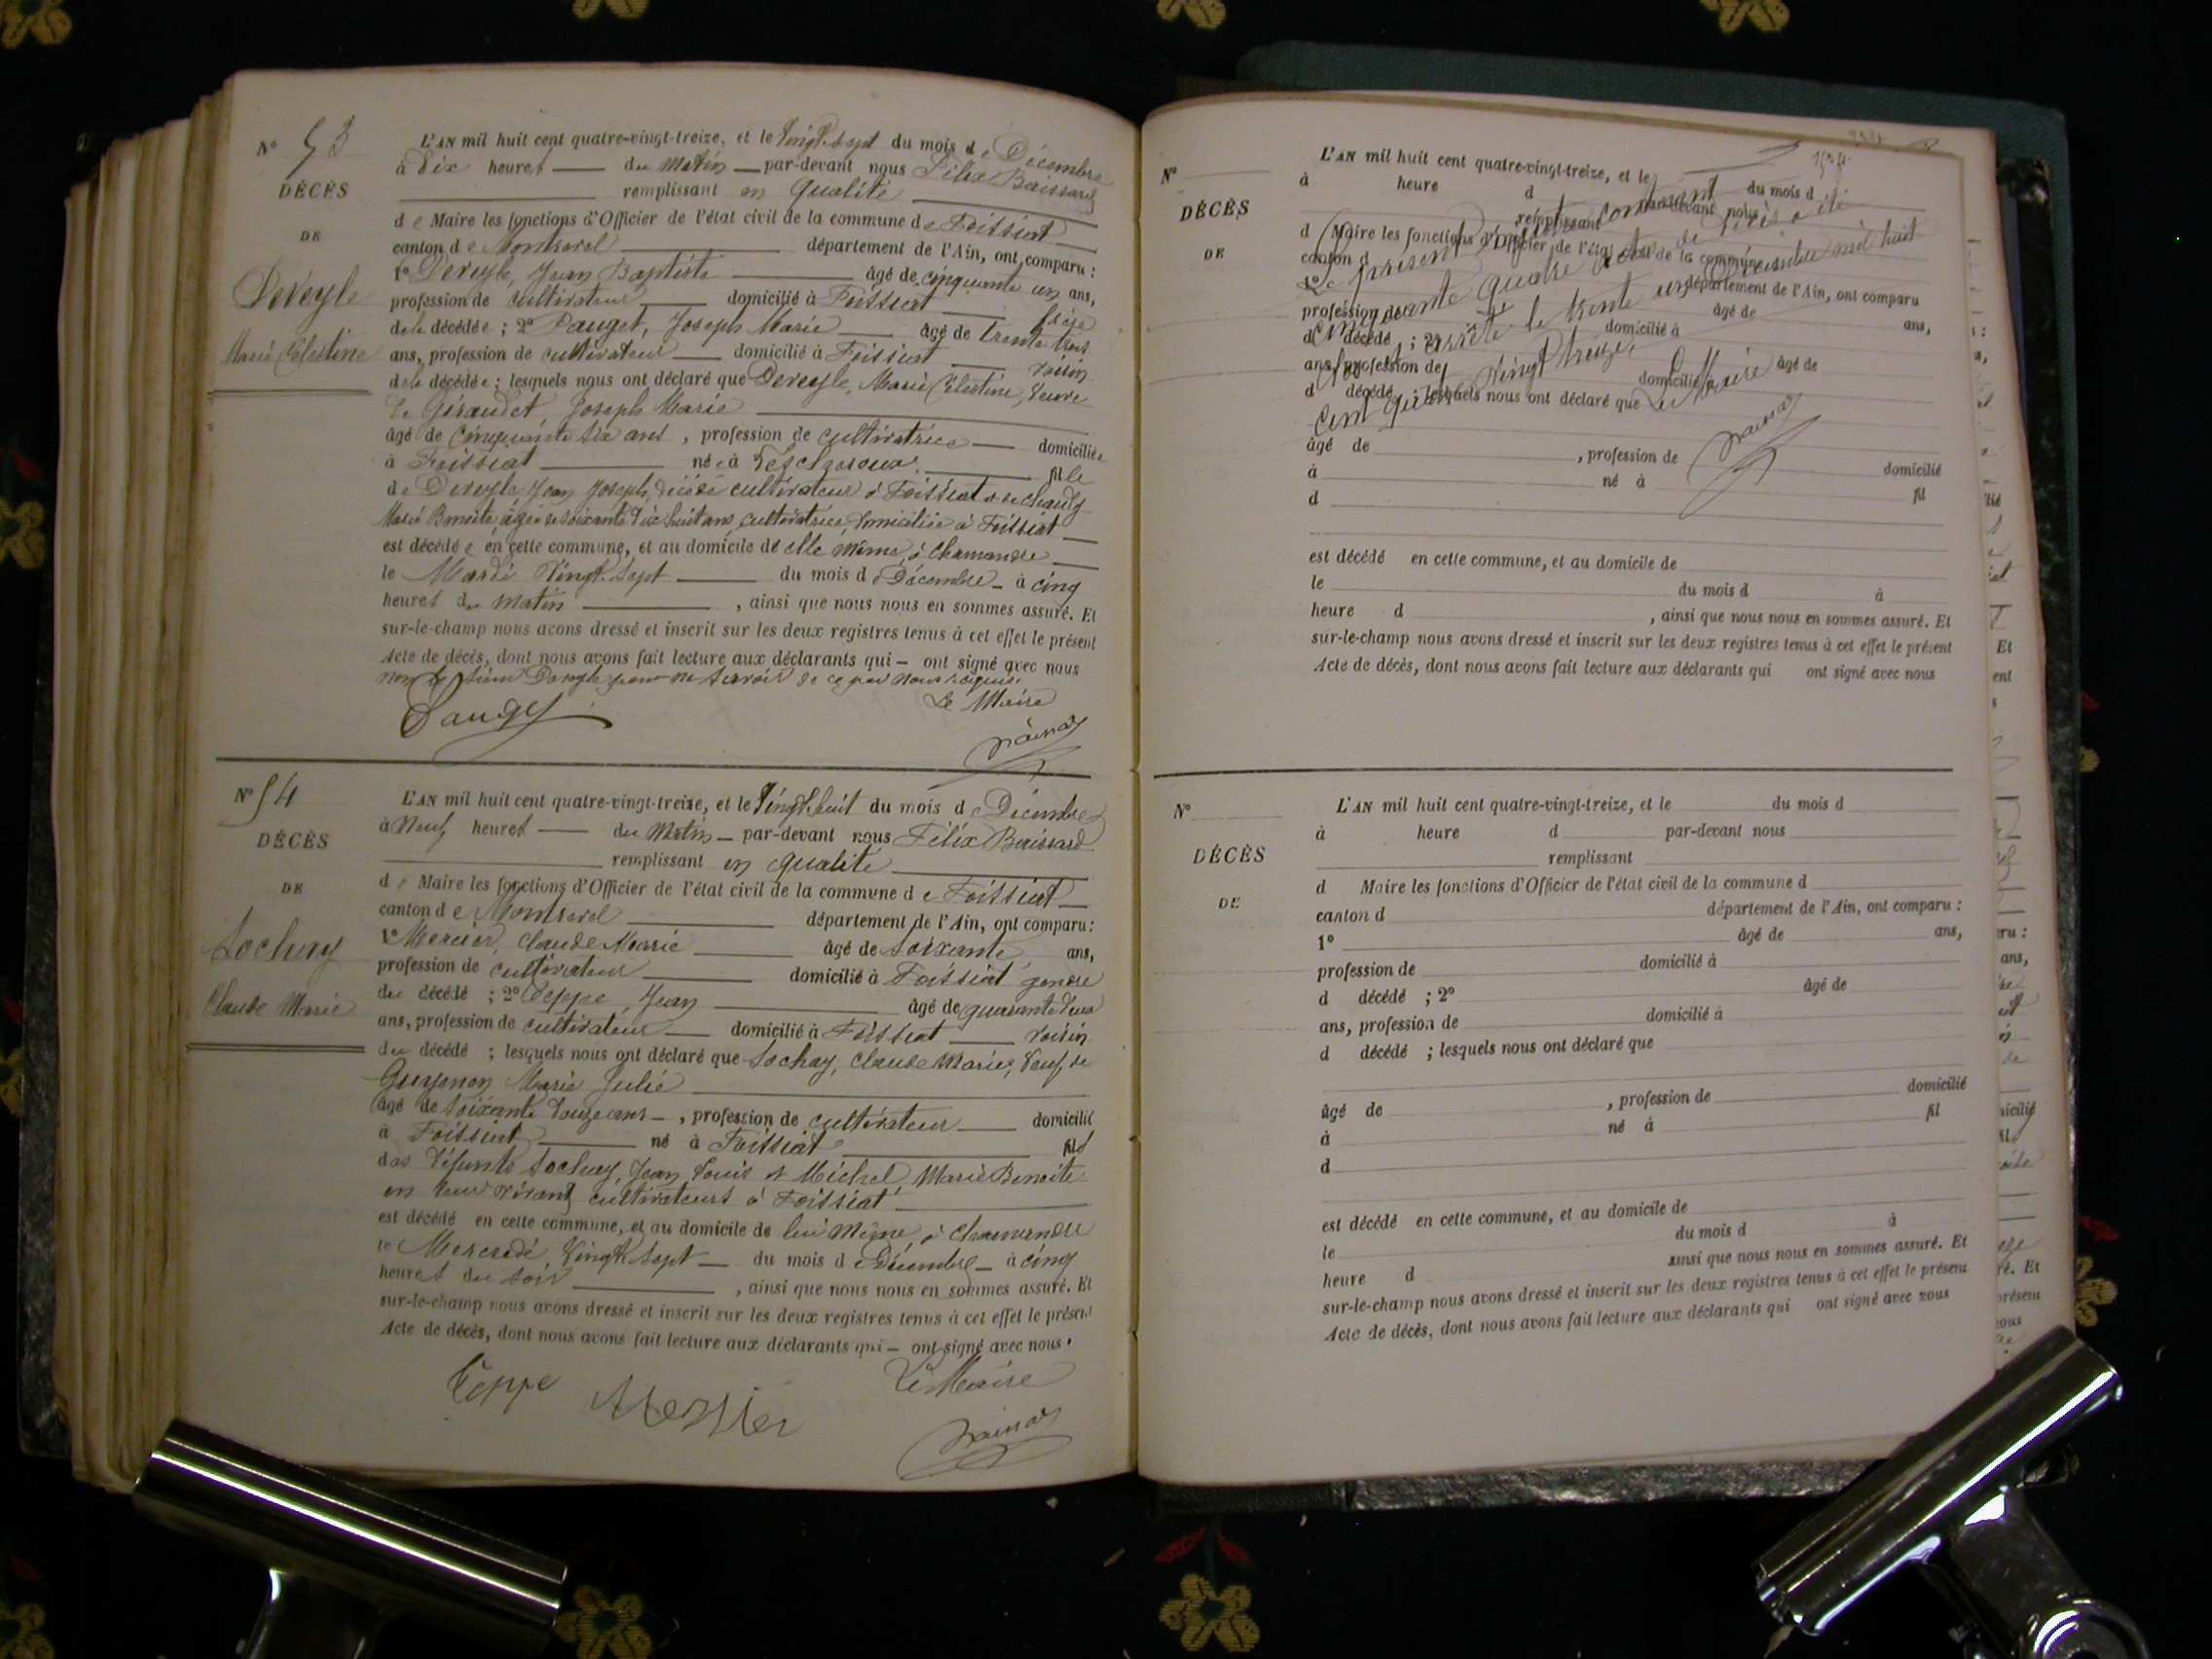 N° 53
DÉCÈS
DE
Deveyle
Marie Célestine
L'AN mil huit cent quatre-vingt-treize, et le Vingt-Sept du mois de Décembre
à Dix heures du Matin par-devant nous Félix Baissard
remplissant en qualité
de Maire les fonctions d'Officier de l'état civil de la commune de Foissiat
canton de Montrevel département de l'Ain, ont comparu :
1° Deveyle, Jean Baptiste âgé de cinquante un ans,
profession de cultivateur domicilié à Foissiat frère
de la décédée ; 2° Pauget, Joseph Marie âgé de trente trois
ans, profession de cultivateur domicilié à Foissiat voisin
de la décédée ; lesquels nous ont déclaré que Deveyle, Marie Célestine, Veuve
de Giraudet, Joseph Marie
âgé de Cinquante six ans, profession de cultivatrice domiciliée
à Foissiat née à Lescheroux fille
de Deveyle Jean Joseph, décédé cultivateur à Foissiat et de
Marie Benoite, âgée de soixante dix huit ans, cultivatrice, domiciliée à Foissiat
est décédée en cette commune, et au domicile de elle même, à Chamandre
le Mardi Vingt-Sept du mois de Décembre à cinq
heures du Matin , ainsi que nous nous en sommes assuré. Et
sur-le-champ nous avons dressé et inscrit sur les deux registres tenus à cet effet le présent
Acte de décès, dont nous avons fait lecture aux déclarants qui — ont signé avec nous
non le sieur Deveyle pour ne savoir de ce par nous requis.
Le Maire
Pauget
Baissard
N° 54
DÉCÈS
DE
Lochay
Claude Marie
L'AN mil huit cent quatre-vingt-treize, et le Vingt-huit du mois de Décembre
à Neuf heures du Matin par-devant nous Félix Baissard
remplissant en qualité
de Maire les fonctions d'Officier de l'état civil de la commune de Foissiat
canton de Montrevel département de l'Ain, ont comparu :
1° Mercier, Claude Marie âgé de soixante ans,
profession de cultivateur domicilié à Foissiat gendre
du décédé ; 2° Teppe, Jean âgé de quarante deux
ans, profession de cultivateur domicilié à Foissiat voisin
du décédé ; lesquels nous ont déclaré que Lochay, Claude Marie, Veuf de
Guyenon Marie Julie
âgé de soixante douze ans , profession de cultivateur domicilié
à Foissiat né à Foissiat fils
des défunts Lochay, Jean Louis et Michel Marie Benoite
en leur vivant cultivateurs à Foissiat
est décédé en cette commune, et au domicile de lui Même, à Chamandre
le Mercredi Vingt Sept du mois de Décembre à cinq
heures du soir , ainsi que nous nous en sommes assuré. Et
sur-le-champ nous avons dressé et inscrit sur les deux registres tenus à cet effet le présent
Acte de décès, dont nous avons fait lecture aux déclarants qui — ont signé avec nous.
Le Maire
Teppe Mercier
Baissard
N°
DÉCÈS
DE
L'AN mil huit cent quatre-vingt-treize, et le du mois d
à heure d par-devant nous
remplissant
d Maire les fonctions d'Officier de l'état civil de la commune
canton d département de l'Ain, ont comparu
1° âgé de ans,
profession de domicilié à
d décédé ; 2° âgé de
ans, profession de domicilié à
d décédé ; lesquels nous ont déclaré que
Le présent registre contenant
cinquante quatre actes de décès a été
clos et arrêté le trente un Décembre mil huit
cent quatre vingt treize,
Le Maire
Baissard
âgé de , profession de domicilié
à né à fil
d
est décédé en cette commune, et au domicile de
le du mois d à
heure d , ainsi que nous nous en sommes assuré. Et
sur-le-champ nous avons dressé et inscrit sur les deux registres tenus à cet effet le présent
Acte de décès, dont nous avons fait lecture aux déclarants qui ont signé avec nous
N°
DÉCÈS
DE
L'AN mil huit cent quatre-vingt-treize, et le du mois d
à heure d par-devant nous
remplissant
d Maire les fonctions d'Officier de l'état civil de la commune d
canton d département de l'Ain, ont comparu :
1° âgé de ans,
profession de domicilié à
d décédé ; 2° âgé de
ans, profession de domicilié à
d décédé ; lesquels nous ont déclaré que
âgé de , profession de domicilié
à né à fil
d
est décédé en cette commune, et au domicile de
le du mois d à
heure d ainsi que nous nous en sommes assuré. Et
sur-le-champ nous avons dressé et inscrit sur les deux registres tenus à cet effet le présent
Acte de décès, dont nous avons fait lecture aux déclarants qui ont signé avec nous